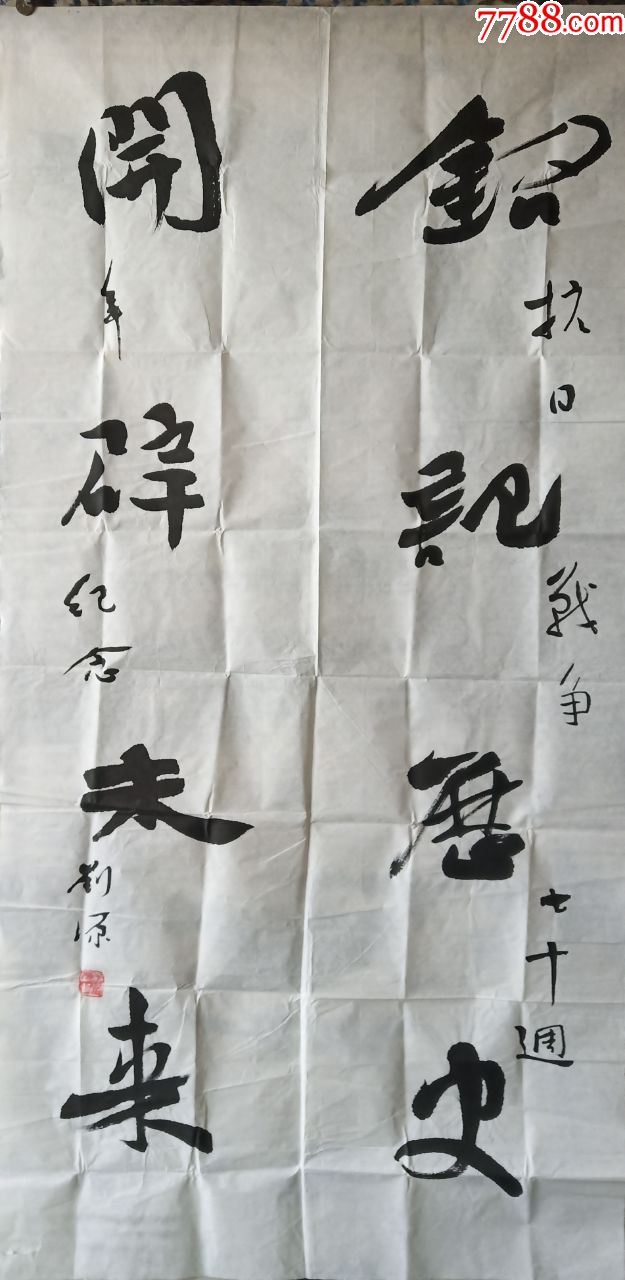 7788.com
銘記歷史
抗日戰争七十週
開辟未来
年纪念
劉源